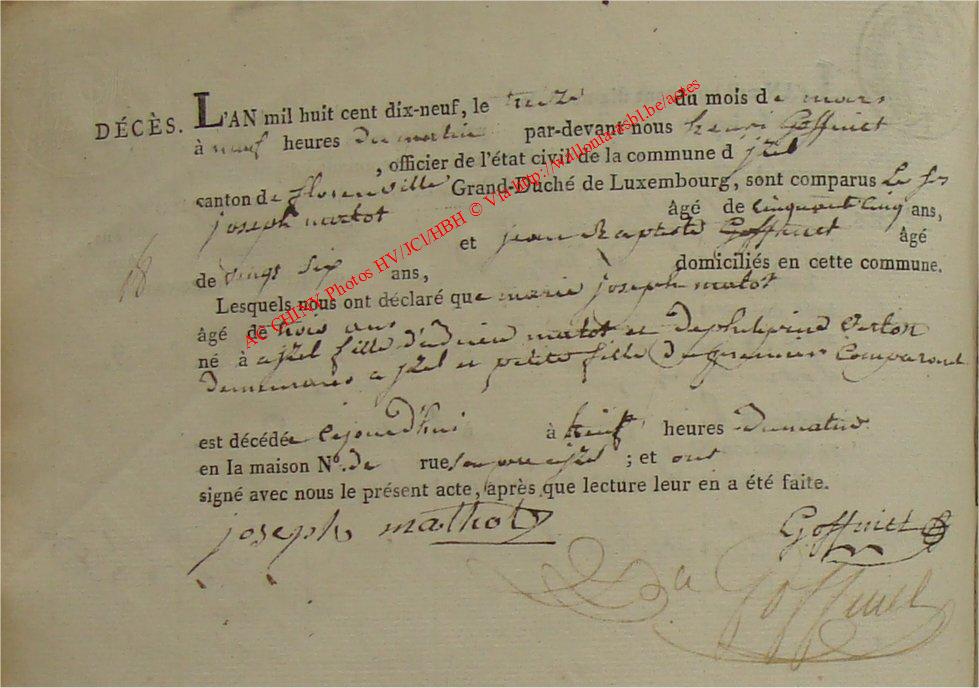 DÉCÈS. L'AN mil huit cent dix-neuf, le treize du mois de mars
à neuf heures du matin par-devant nous henri Goffinet
, officier de l'état civil de la commune d jzel
canton de florenville Grand-Duché de Luxembourg, sont comparus Le sr
joseph matot âgé de cinquant cinq ans,
et jean Baptiste Goffinet âgé
18
de vingt six ans, domiciliés en cette commune.
Lesquels nous ont déclaré que marie joseph matot
âgé de trois ans
né à a jzel fille d'adrien matot et de
demeurans a jzel et petite fille du premier Comparant
est décédée cejourd'hui à heures du matin
en la maison No. de rue a jzel ; et ont
signé avec nous le présent acte, après que lecture leur en a été faite.
joseph mathot Goffinet
Goffinet
AC CHINY Photos HV/JCl/HBH © Via http://walloniaasbl.be/actes